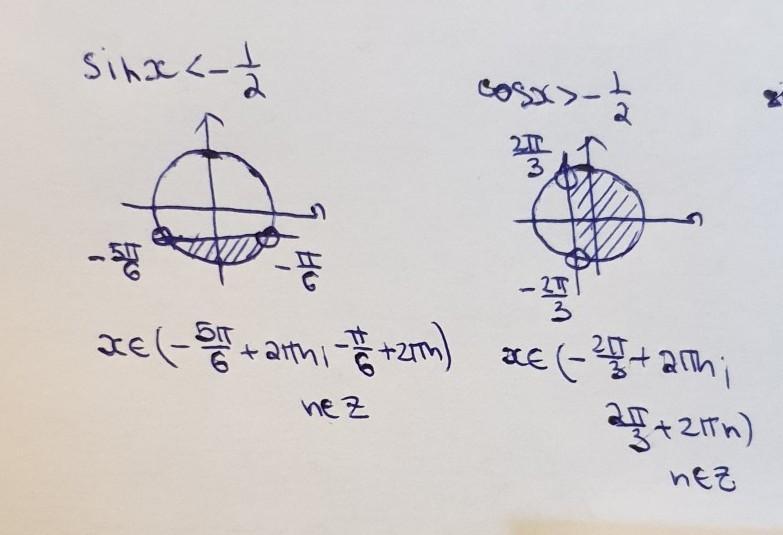 sinx < -1/2
-5π/6
-π/6
x∈(-5π/6+2πn; -π/6+2πn)
n∈Z
cosx > -1/2
2π/3
-2π/3
x∈(-2π/3+2πn;
2π/3+2πn)
n∈Z